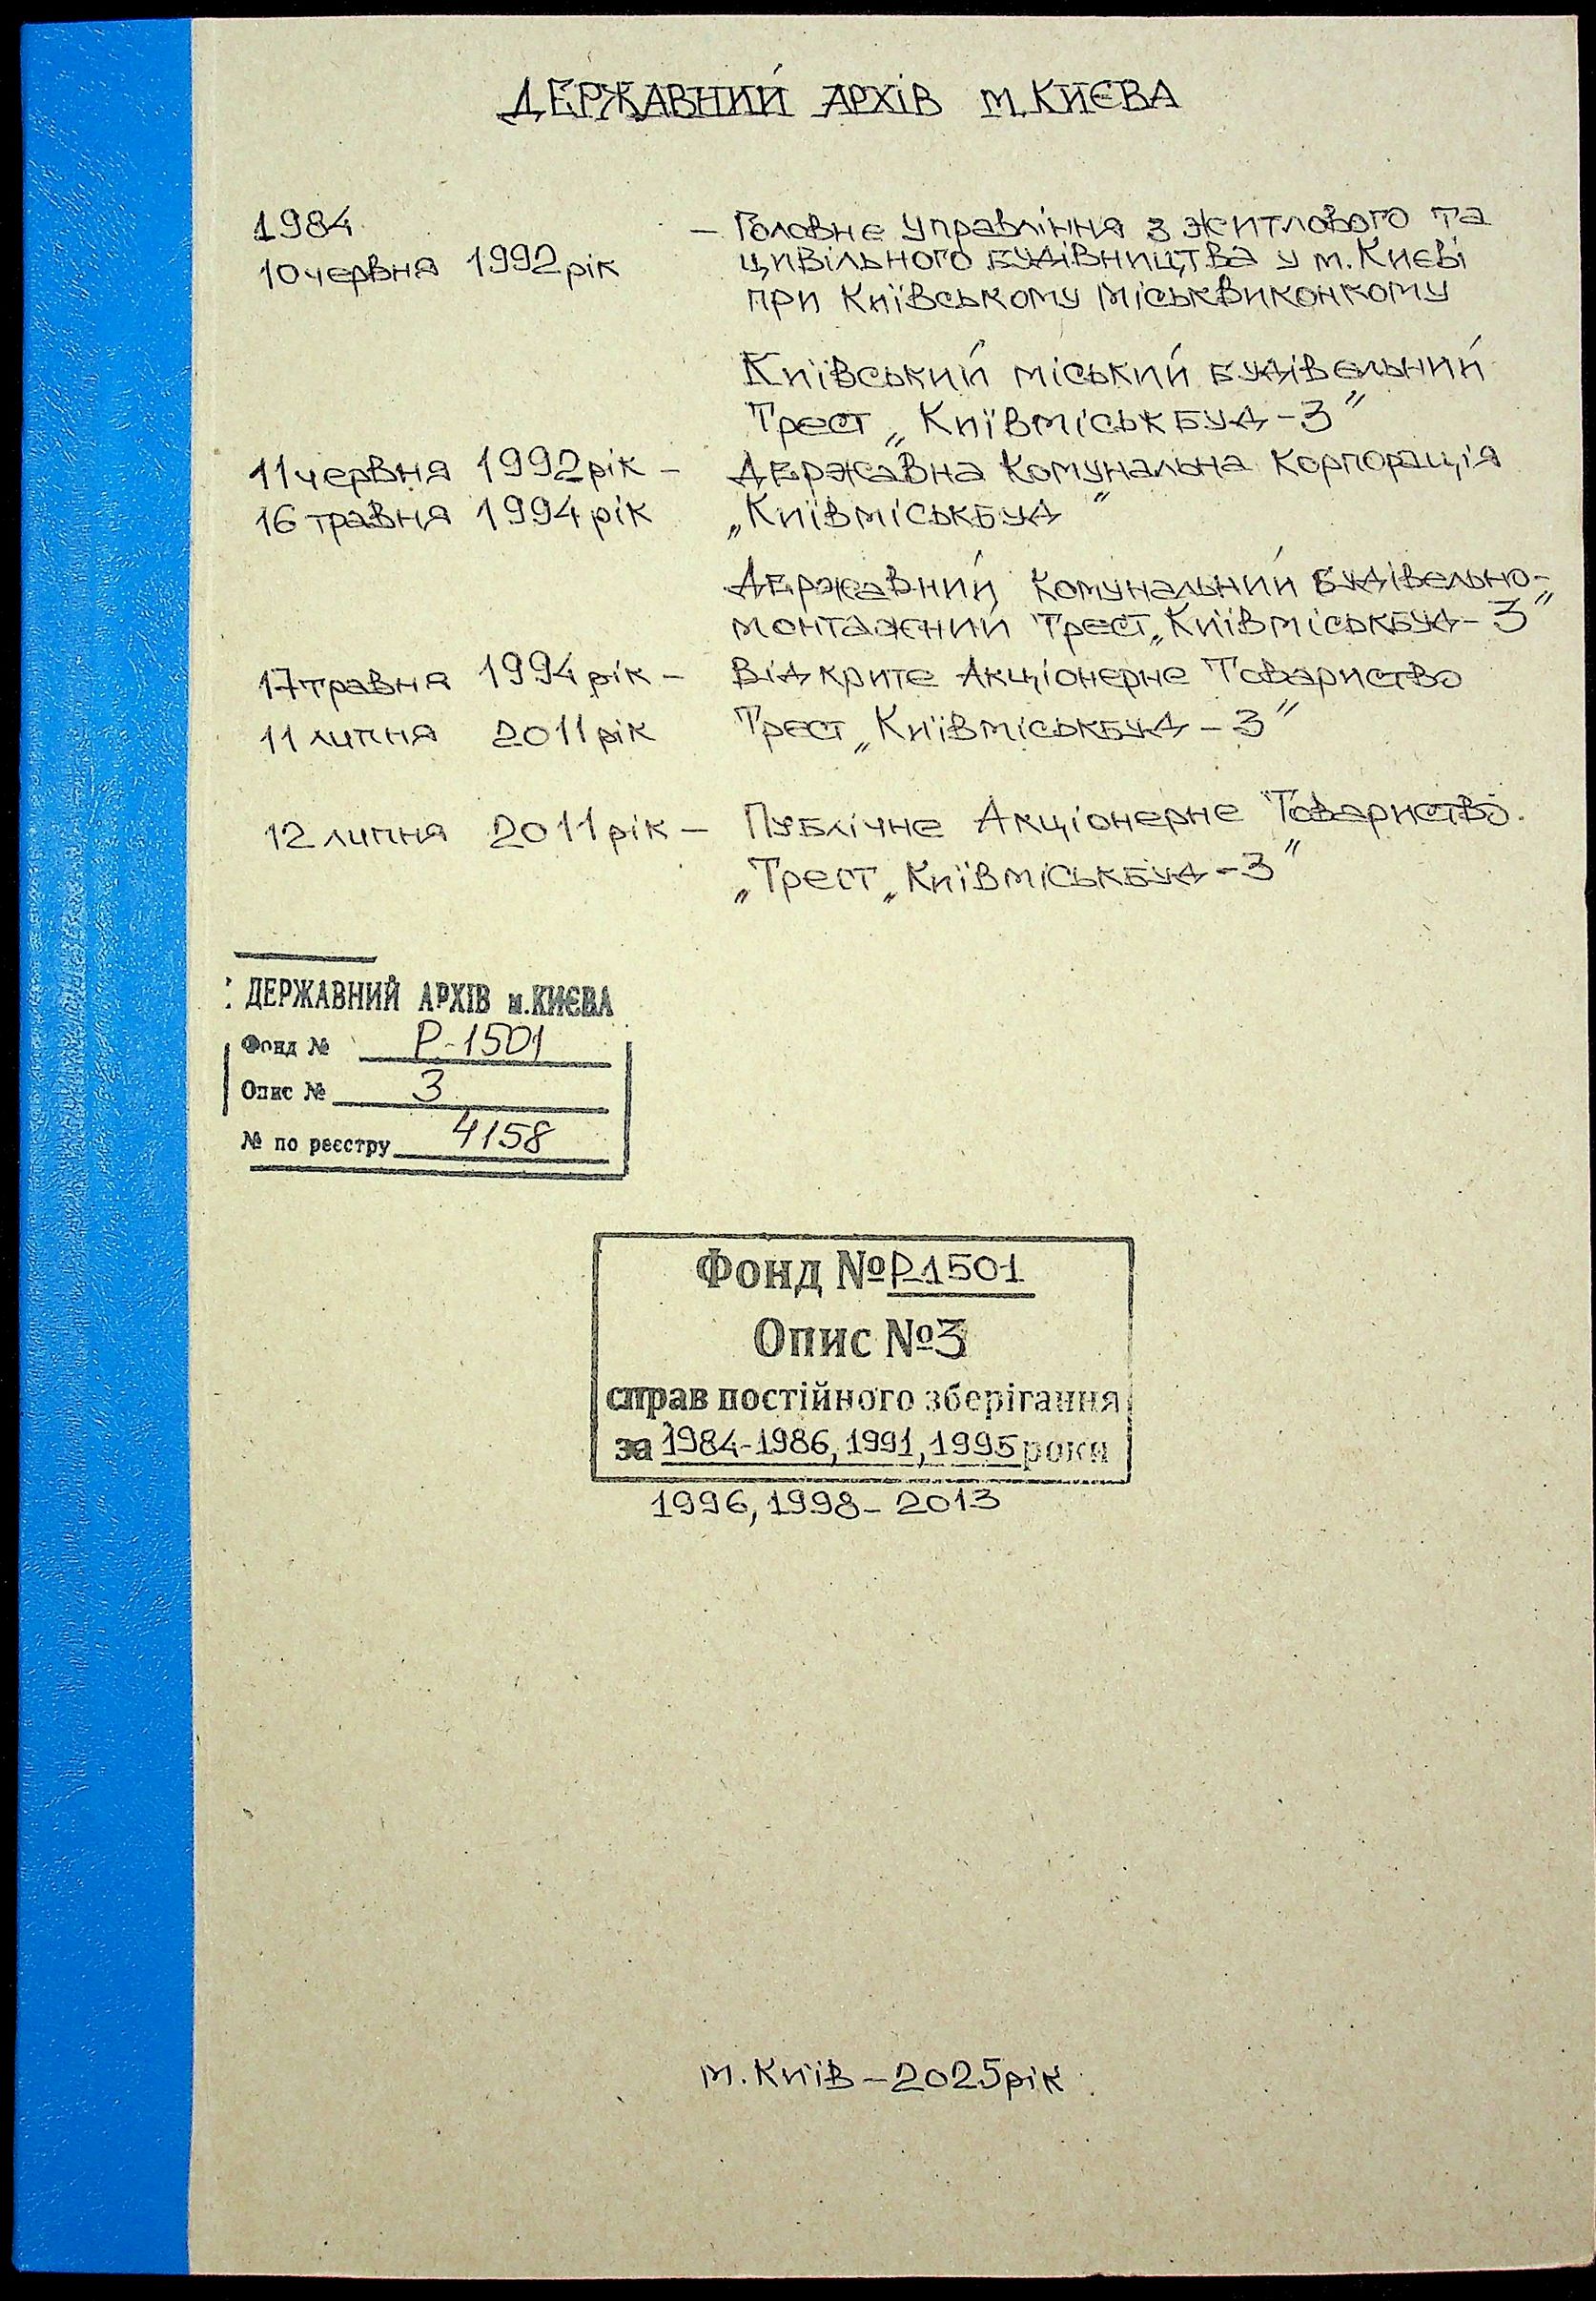 ДЕРЖАВНИЙ АРХІВ м.КИЄВА
1984 – Головне управління з житлового та
10 червня 1992 рік цивільного будівництва у м. Києві
при Київському міськвиконкому
Київський міський будівельний
Трест „Київміськбуд-3”
11 червня 1992 рік – Державна комунальна корпорація
16 травня 1994 рік „Київміськбуд”
Державний комунальний будівельно-
монтажний трест „Київміськбуд-3”
17 травня 1994 рік – Відкрите Акціонерне Товариство
11 липня 2011 рік Трест „Київміськбуд-3”
12 липня 2011 рік – Публічне Акціонерне Товариство
„Трест „Київміськбуд-3”
ДЕРЖАВНИЙ АРХІВ м.КИЄВА
Фонд № Р-1501
Опис № 3
№ по реєстру 4158
Фонд №Р-1501
Опис №3
справ постійного зберігання
за 1984-1986, 1991, 1995 роки
1996, 1998-2013
м. Київ – 2025 рік